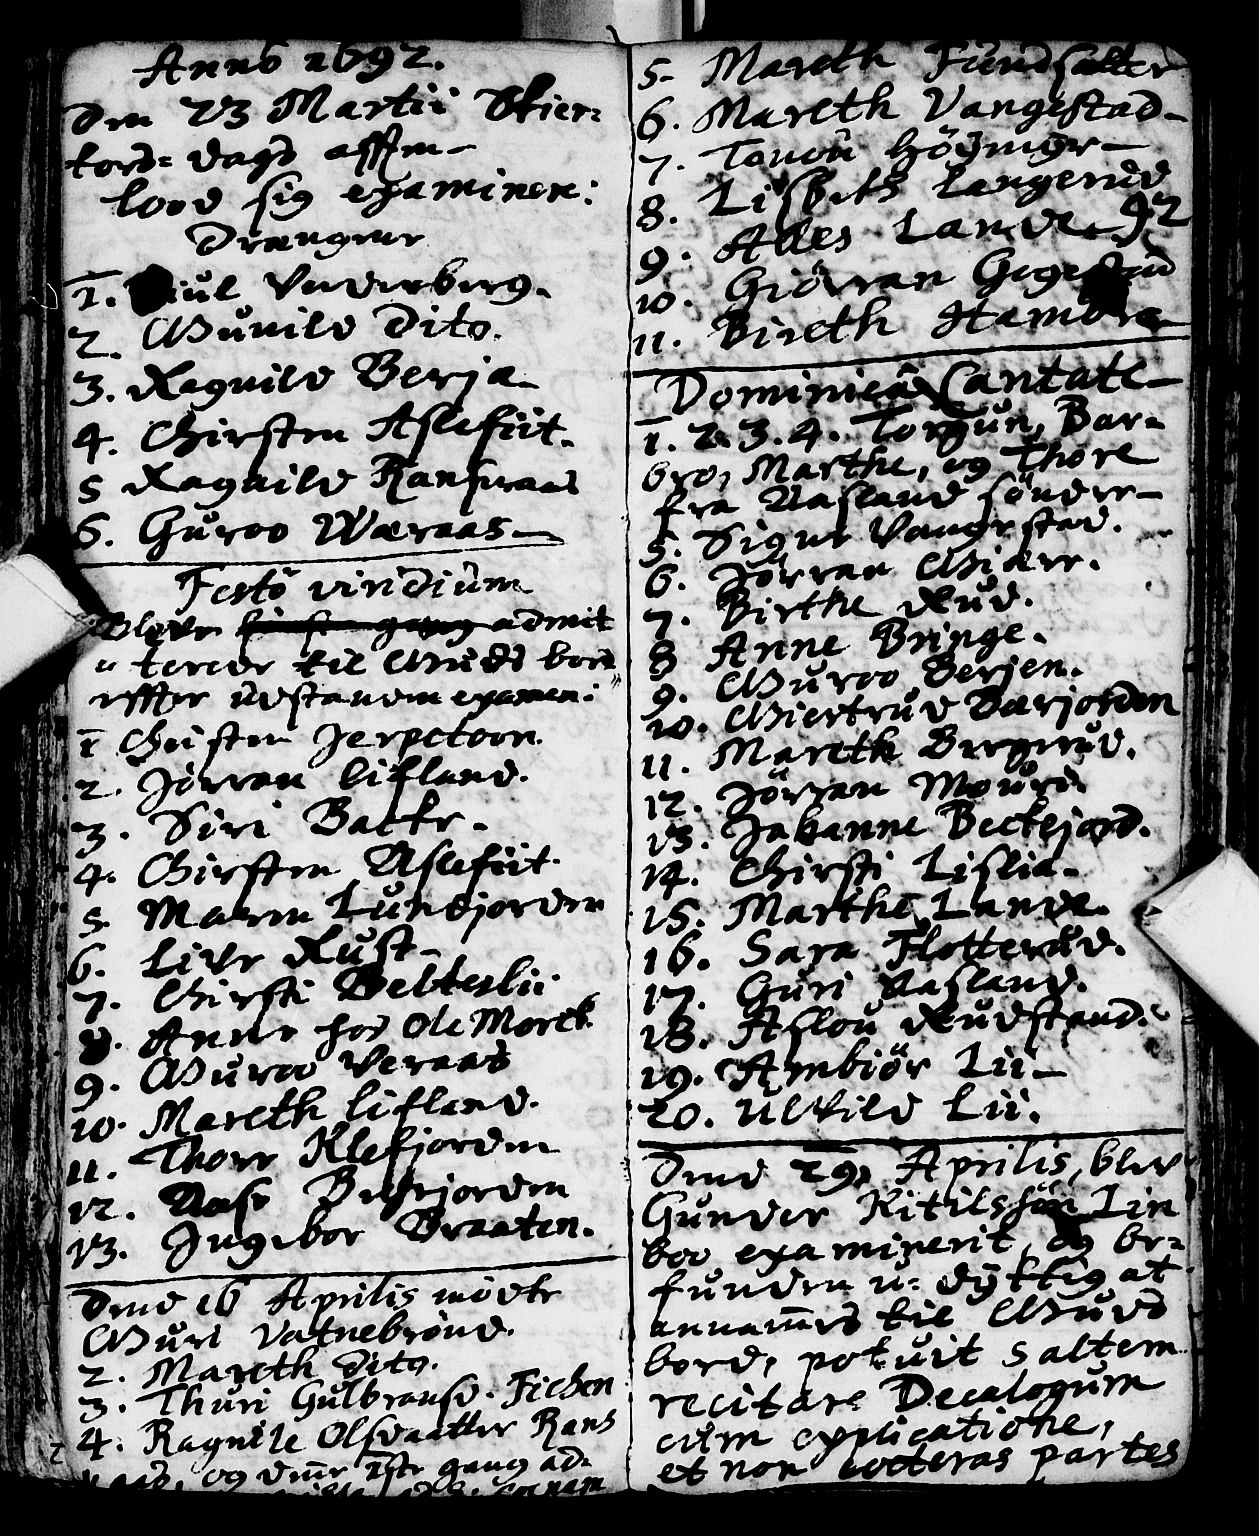 Anno 1692.
Den 23 Martii Skier=
tors= dags afften
lood sig examinere:
Drængeer
1. Underberg.
2. Gunild Dito.
3. Ragnild Berja
4. Chirsten Aslefiit.
5 Ragnild Ransvaas
6. Guroo Wæraas
Festo viridium
Blefve admit
terede til Guds bord
effter udstanden examen:
1 Christen Jerpetoon.
2. Jörran Lifland.
3. Siri Backe.
4. Chirsten Aslefiit.
5. Maren Lundjorden
6. Live Rust
7. Chirsti Belteslii
8. Anne hos Ole Moreb
9. Guroo Veraas
10. Mareth Lifland.
11. Thore Klefjorden
12. Aase
13. Ingebor Braaten.
Dend 16 Aprilis mödte
Guri Vatnebrönd.
2. Mareth Dito.
3. Thuri Gulbransd. Fichen
4. Ragnile Olsdaatter Rans
vaas, og denne 1ste gang ad=
5. Mareth Fundsætter
6. Mareth Vangestad
7. Touou
8. Lisbeth Langerud
9. Alles Lande 92
10. Giörran Gegestad
11. Bireth Hambre
Dominica Cantate
1. 2. 3. 4. Torgun, Bar=
bro, Marthe, og Thore
fra Aasland söndre
5. Signe Vangestad.
6. Jörran Giære.
7. Birthe Rud.
8 Anne Bringe.
9. Guroo Berjen.
10. Giertrud Bærjorden
11. Mareth Bergerud.
12. Jörran Mourd.
13. Johanne Beckejord.
14. Chirsti Lislia
15. Marthe Lande.
16. Sara Flotterud.
17. Guri Aasland.
18. Aslou Rudstand.
19. Ambiör Lii
20. Ulvild Lii.
Dend 29 Aprilis, blev
Gunder Kitilssön Lin
boo examinerit, og be=
funden u= dyktig at
annammes til Guds
bord, potuit saltem
recitare Decalogum
cum explicatione,
et non cæteras partes